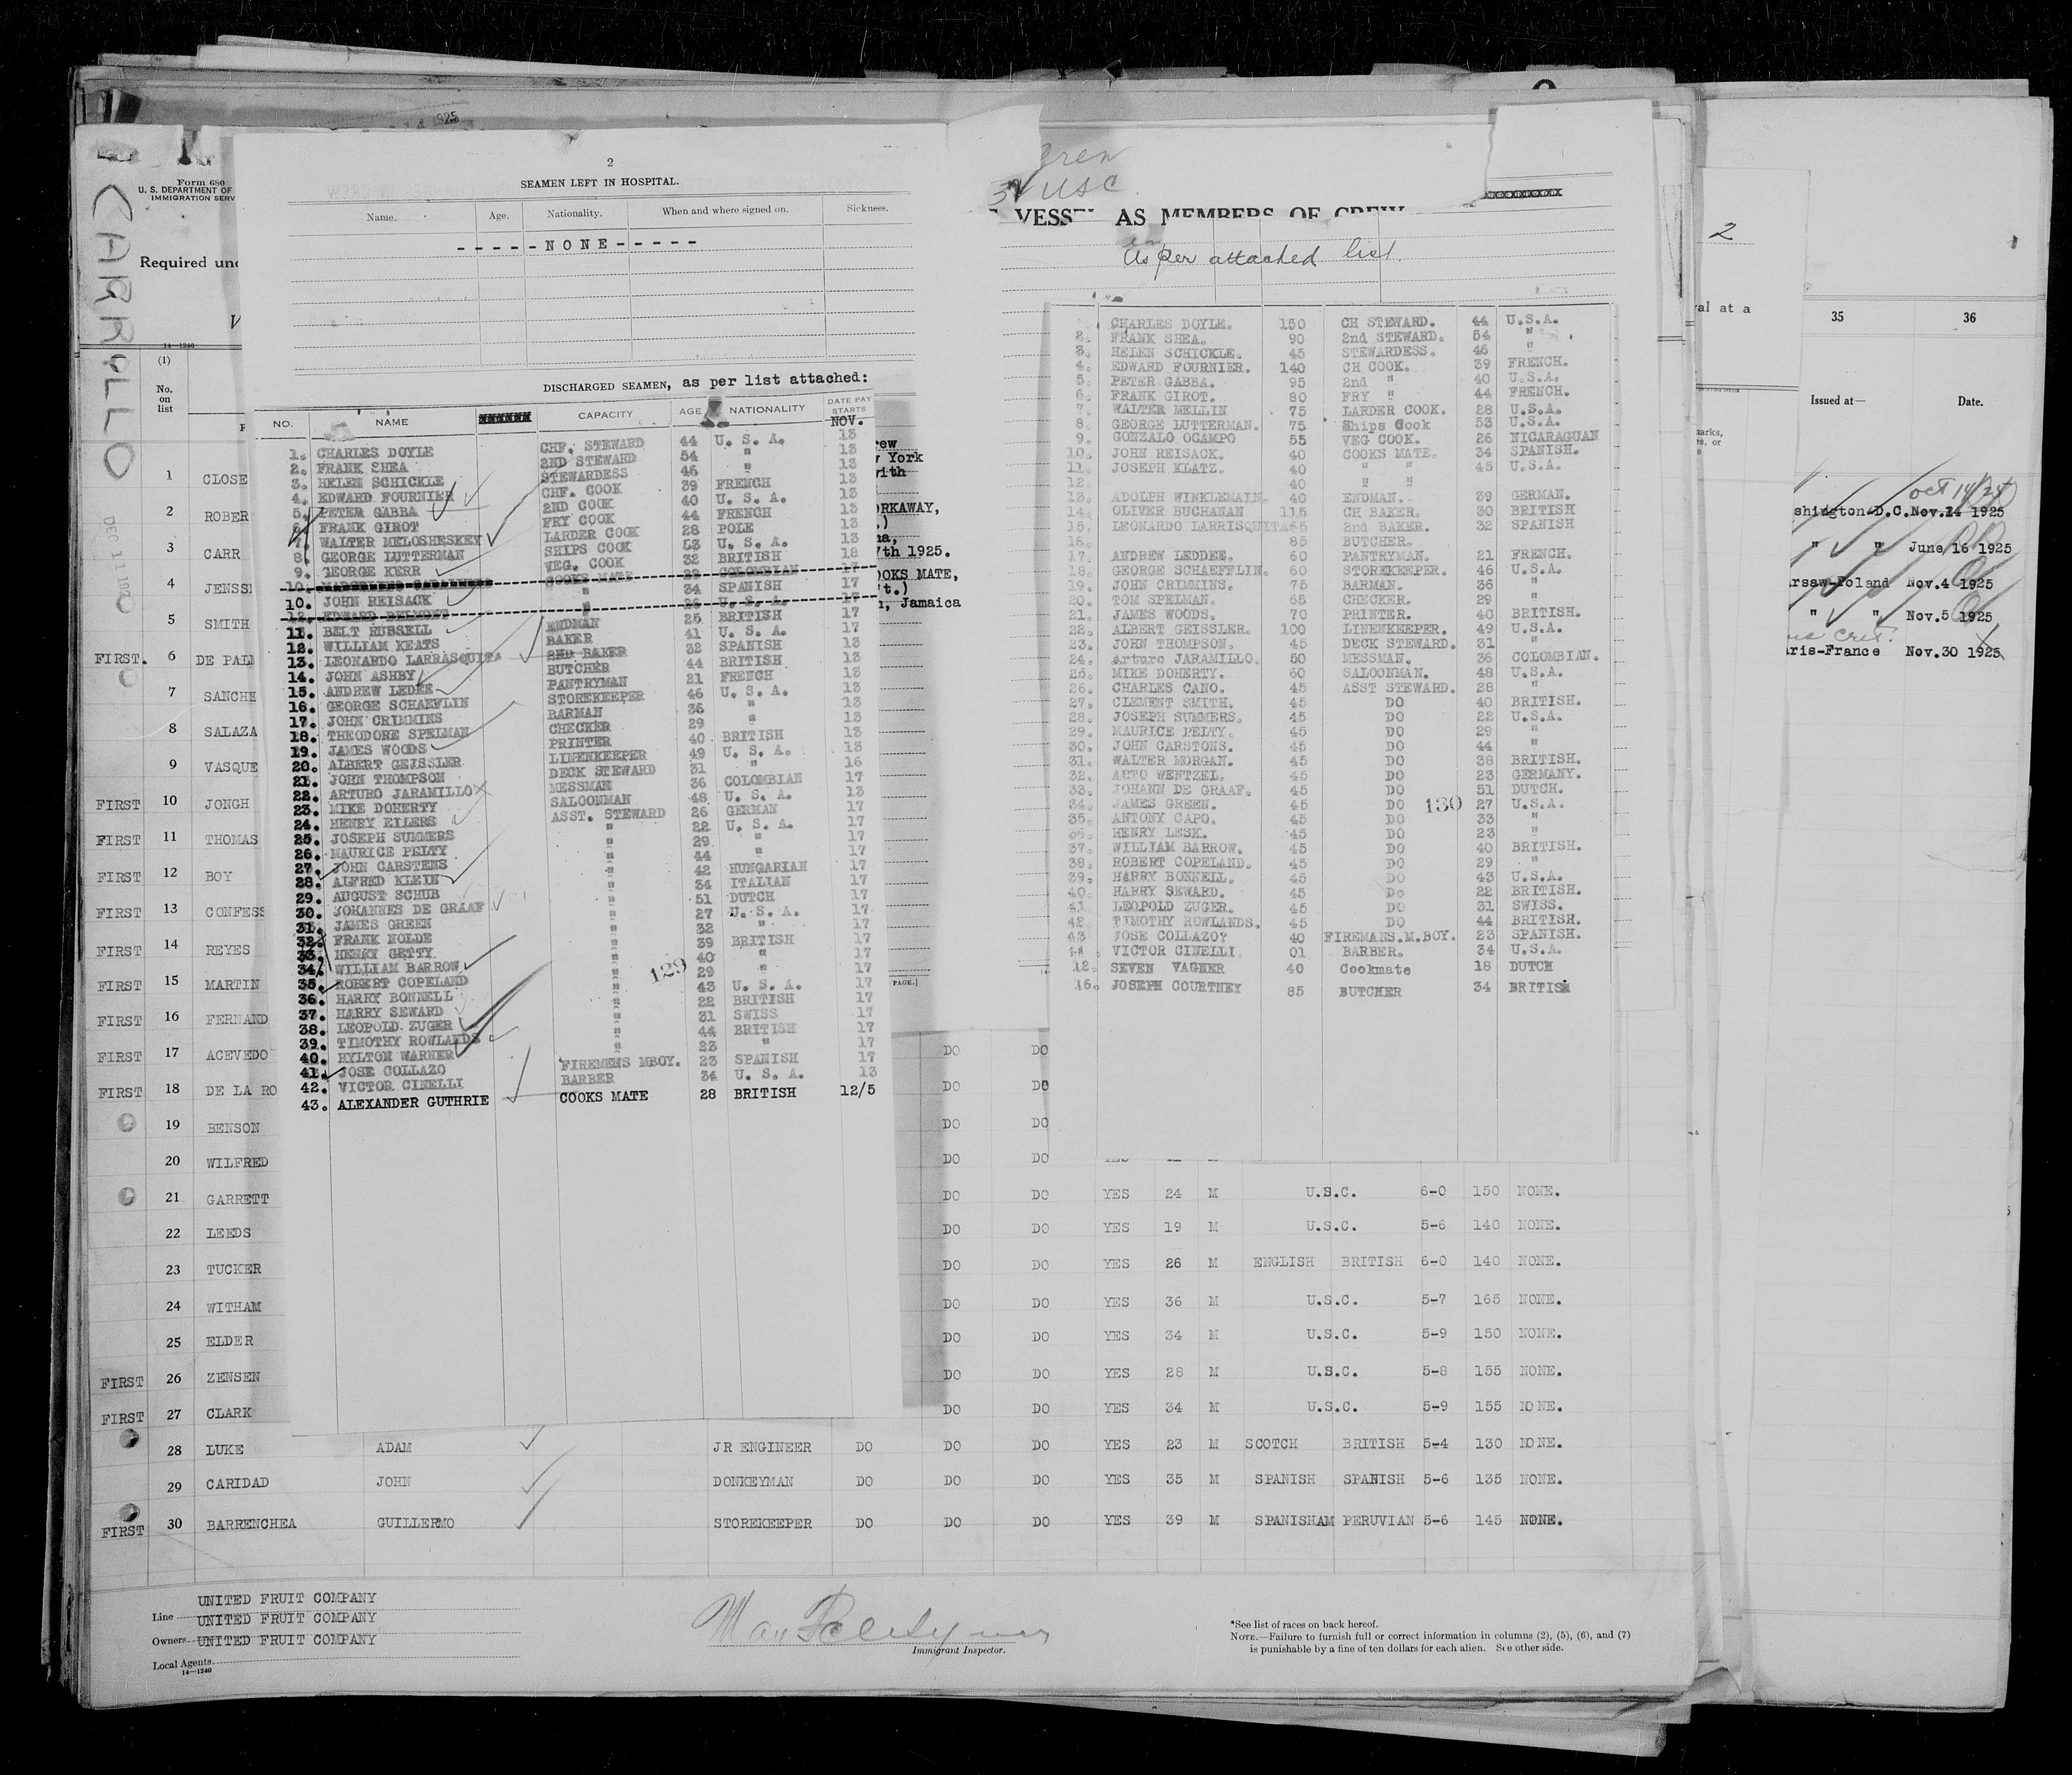 1925
CARRILLO
DEC 11 192
Form 680
U. S. DEPARTMENT OF
IMMIGRATION SERV
Required und
14—1240
(1)
No. on list
2
SEAMEN LEFT IN HOSPITAL.
Name. Age. Nationality. When and where signed on. Sickness.
-----NONE-----
DISCHARGED SEAMEN, as per list attached:
NO. NAME CAPACITY AGE NATIONALITY DATE PAY STARTS
NOV.
1. CHARLES DOYLE CHF. STEWARD 44 U. S. A. 13
2. FRANK SHEA 2ND STEWARD 54 " 13
3. HELEN SCHICKLE STEWARDESS 46 " 13
4. EDWARD FOURNIER CHF. COOK 39 FRENCH 13
5. PETER GABBA 2ND COOK 40 U. S. A. 13
6. FRANK GIROT FRY COOK 44 FRENCH 13
7. WALTER MELOSHESKEY LARDER COOK 28 POLE 13
8. GEORGE LUTTERMAN SHIPS COOK 53 U. S. A. 13
9. GEORGE KERR VEG. COOK 32 BRITISH 18
10. COOKS MATE 28 COLOMBIAN 17
10. JOHN REISACK " 34 SPANISH 17
12. EDWARD BELMONT " 26 U. S. A. 17
11. BELT RUSSELL ENDMAN 25 BRITISH 17
12. WILLIAM KEATS BAKER 41 U. S. A. 17
13. LEONARDO LARRASQUITA 2ND BAKER 32 SPANISH 13
14. JOHN ASHBY BUTCHER 44 BRITISH 13
15. ANDREW LEDEE PANTRYMAN 21 FRENCH 13
16. GEORGE SCHAEFLIN STOREKEEPER 46 U. S. A. 13
17. JOHN CRIMMINS BARMAN 36 " 13
18. THEODORE SPELMAN CHECKER 29 " 13
19. JAMES WOODS PRINTER 40 BRITISH 13
20. ALBERT GEISSLER LINENKEEPER 49 U. S. A. 13
21. JOHN THOMPSON DECK STEWARD 31 " 16
22. ARTURO JARAMILLO MESSMAN 36 COLOMBIAN 17
23. MIKE DOHERTY SALOONMAN 48 U. S. A. 13
24. HENRY EILERS ASST. STEWARD 26 GERMAN 17
25. JOSEPH SUMMERS " 22 U. S. A. 17
26. MAURICE PELTY " 29 " 17
27. JOHN CARSTENS " 44 " 17
28. ALFRED KLEIN " 42 HUNGARIAN 17
29. AUGUST SCHUB " 34 ITALIAN 17
30. JOHANNES DE GRAAF " 51 DUTCH 17
31. JAMES GREEN " 27 U. S. A. 17
32. FRANK NOLDE " 32 " 17
33. HENRY GETTY " 39 BRITISH 17
34. WILLIAM BARROW " 40 " 17
35. ROBERT COPELAND " 29 " 17
36. HARRY BONNELL " 43 U. S. A. 17
37. HARRY SEWARD " 22 BRITISH 17
38. LEOPOLD ZUGER " 31 SWISS 17
39. TIMOTHY ROWLANDS " 44 BRITISH 17
40. HYLTON WARNER " 23 " 17
41. JOSE COLLAZO FIREMENS MBOY. 23 SPANISH 17
42. VICTOR CINELLI BARBER 34 U. S. A. 13
43. ALEXANDER GUTHRIE COOKS MATE 28 BRITISH 12/5
129
rew
York
with
ORKAWAY,
7th 1925.
OOKS MATE,
t.)
, Jamaica
PAGE.]
Crew
3 USC
VESSEL AS MEMBERS OF CREW
As per attached list.
CHARLES DOYLE. 150 CH STEWARD. 44 U.S.A.
2. FRANK SHEA. 90 2nd STEWARD. 54 "
3. HELEN SCHICKLE. 45 STEWARDESS. 46 "
4. EDWARD FOURNIER. 140 CH COOK. 39 FRENCH.
5. PETER GABBA. 95 2nd " 40 U.S.A.
6. FRANK GIROT. 80 FRY " 44 FRENCH.
7. WALTER MELLIN 75 LARDER COOK. 28 U.S.A.
8. GEORGE LUTTERMAN. 75 Ships Cook 53 U.S.A.
9. GONZALO OCAMPO 55 VEG COOK. 26 NICARAGUAN
10. JOHN REISACK. 40 COOKS MATE. 34 SPANISH.
11. JOSEPH KLATZ. 40 " " 45 U.S.A.
12. 40 " "
13. ADOLPH WINKLEMAIN. 40 ENDMAN. 39 GERMAN.
14. OLIVER BUCHANAN 115 CH BAKER. 30 BRITISH
15. LEONARDO LARRISQUITA 65 2nd BAKER. 32 SPANISH
16. 85 BUTCHER.
17. ANDREW LEDDEE. 60 PANTRYMAN. 21 FRENCH.
18. GEORGE SCHAEFFLIN. 60 STOREKEEPER. 46 U.S.A.
19. JOHN CRIMMINS. 75 BARMAN. 36 "
20. TOM SPELMAN. 65 CHECKER. 29 "
21. JAMES WOODS. 70 PRINTER. 40 BRITISH.
22. ALBERT GEISSLER. 100 LINENKEEPER. 49 U.S.A.
23. JOHN THOMPSON. 45 DECK STEWARD. 31
24. Arturo JARAMILLO. 50 MESSMAN. 36 COLOMBIAN.
25. MIKE DOHERTY. 60 SALOONMAN. 48 U.S.A.
26. CHARLES CANO. 45 ASST STEWARD. 28 "
27. CLEMENT SMITH. 45 DO 40 BRITISH.
28. JOSEPH SUMMERS. 45 DO 22 U.S.A.
29. MAURICE PELTY. 45 DO 29 "
30. JOHN CARSTONS. 45 DO 44 "
31. WALTER MORGAN. 45 DO 38 BRITISH.
32. ARTO WENTZEL. 45 DO 23 GERMANY.
33. JOHANN DE GRAAF. 45 DO 51 DUTCH.
34. JAMES GREEN. 45 DO 130 27 U.S.A.
35. ANTONY CAPO. 45 DO 33 "
36. HENRY LESK. 45 DO 23 "
37. WILLIAM BARROW. 45 DO 40 BRITISH.
38. ROBERT COPELAND. 45 DO 29 "
39. HARRY BONNELL. 45 DO 43 U.S.A.
40. HARRY SEWARD. 45 Do 22 BRITISH.
41. LEOPOLD ZUGER. 45 DO 31 SWISS.
42. TIMOTHY ROWLANDS. 45 DO 44 BRITISH.
43 JOSE COLLAZO? 40 FIREMANS.M.BOY. 23 SPANISH.
44 VICTOR CINELLI. 01 BARBER. 34 U.S.A.
12. SEVEN VAGNER 40 Cookmate 18 DUTCH
16. JOSEPH COURTNEY 85 BUTCHER 34 BRITISH
2
val at a
35 36
Issued at— Date.
Oct 14/24
shington-D.C. Nov.24 1925
" " June 16 1925
rsaw-Poland Nov.4 1925
" " Nov.5 1925
ris-France Nov.30 1925
1 CLOSE
2 ROBER
3 CARR
4 JENSS
5 SMITH
FIRST. 6 DE PALM
7 SANCHE
8 SALAZA
9 VASQUE
FIRST 10 JONGH
FIRST 11 THOMAS
FIRST 12 BOY
FIRST 13 CONFESS
FIRST 14 REYES
FIRST 15 MARTIN
FIRST 16 FERNAND
FIRST 17 ACEVEDO DO DO
FIRST 18 DE LA RO DO DO
19 BENSON DO DO
20 WILFRED DO DO
21 GARRETT DO DO YES 24 M U.S.C. 6-0 150 NONE.
22 LEEDS DO DO YES 19 M U.S.C. 5-6 140 NONE.
23 TUCKER DO DO YES 26 M ENGLISH BRITISH 6-0 140 NONE.
24 WITHAM DO DO YES 36 M U.S.C. 5-7 165 NONE.
25 ELDER DO DO YES 34 M U.S.C. 5-9 150 NONE.
FIRST 26 ZENSEN DO DO YES 28 M U.S.C. 5-8 155 NONE.
FIRST 27 CLARK DO DO YES 34 M U.S.C. 5-9 155 NONE.
28 LUKE ADAM JR ENGINEER DO DO DO YES 23 M SCOTCH BRITISH 5-4 130 NONE.
29 CARIDAD JOHN DONKEYMAN DO DO DO YES 35 M SPANISH SPANISH 5-6 135 NONE.
FIRST 30 BARRENCHEA GUILLERMO STOREKEEPER DO DO DO YES 39 M SPANISHAM PERUVIAN 5-6 145 NONE.
UNITED FRUIT COMPANY
Line UNITED FRUIT COMPANY
Owners UNITED FRUIT COMPANY
Local Agents
14—1240
Immigrant Inspector.
*See list of races on back hereof.
NOTE.—Failure to furnish full or correct information in columns (2), (5), (6), and (7)
is punishable by a fine of ten dollars for each alien. See other side.